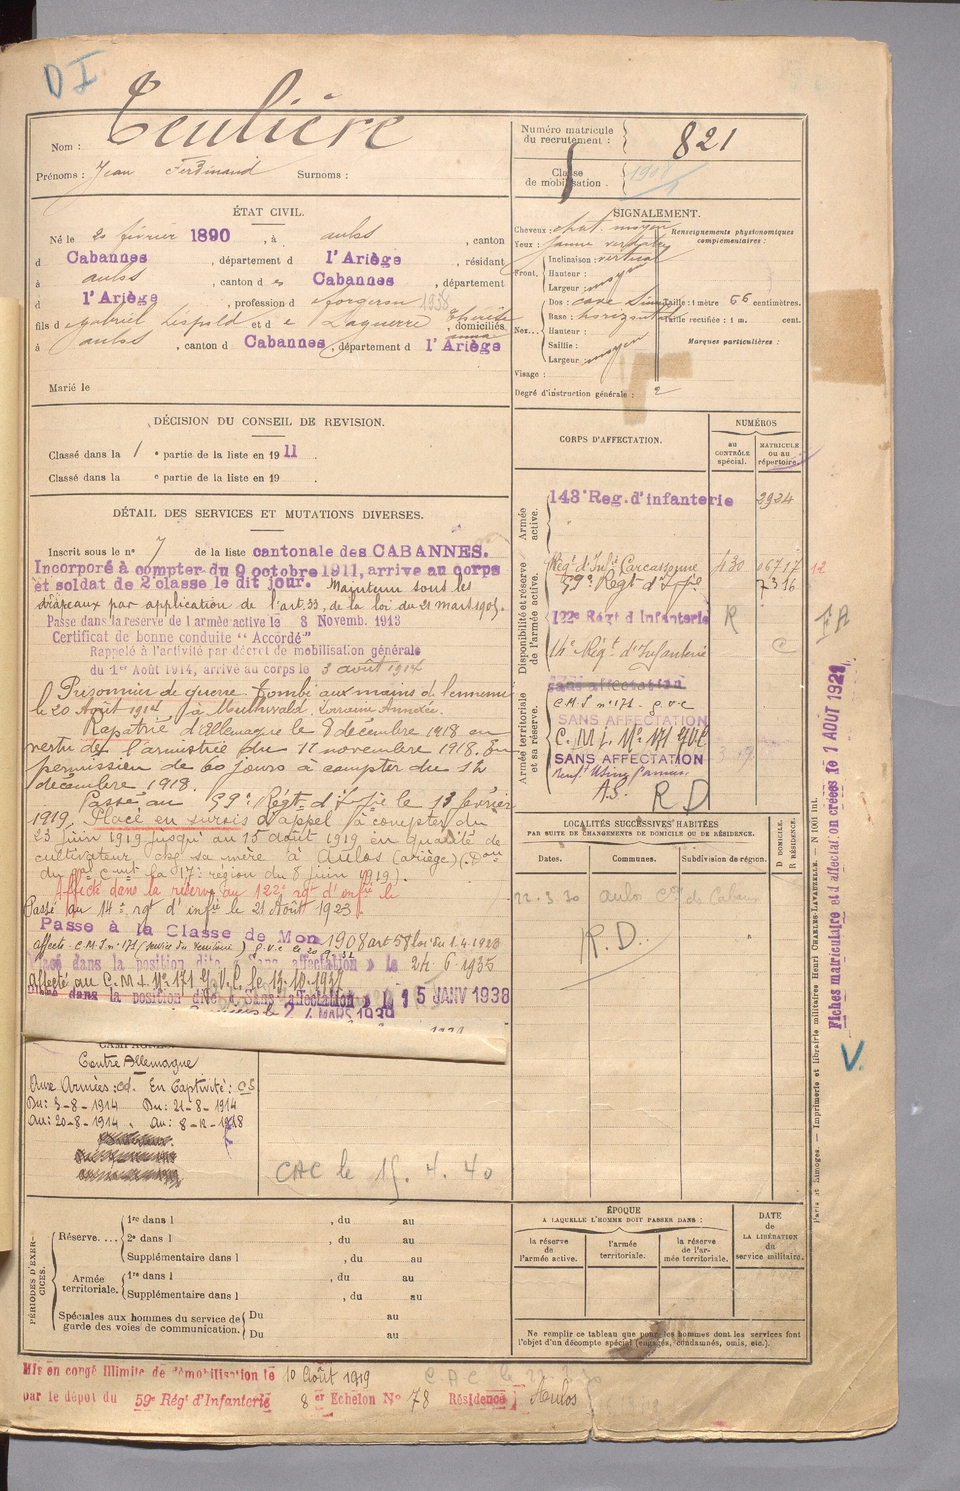 D I
Nom : Teulière
Prénoms : Jean Ferdinand Surnoms :
ÉTAT CIVIL.
Né le 20 février 1890, à Aulos, canton
d Cabannes, département d l'Ariège, résidant
à Aulos, canton d es Cabannes, département
d l'Ariège, profession d forgeron
fils d Gabriel Léopold et d e Laguerre Thérèse, domiciliés
à Aulos, canton d Cabannes, département d l'Ariège
Marié le
DÉCISION DU CONSEIL DE REVISION.
Classé dans la 1 e partie de la liste en 1911.
Classé dans la e partie de la liste en 19
DÉTAIL DES SERVICES ET MUTATIONS DIVERSES.
Inscrit sous le n° 7 de la liste cantonale des CABANNES.
Incorporé à compter du 9 octobre 1911, arrive au corps
et soldat de 2e classe le dit jour. Maintenu sous les
drapeaux par application de l'art. 33, de la loi du 21 mars 1905.
Passé dans la reserve de l armée active le 8 Novemb. 1913
Certificat de bonne conduite "Accordé"
Rappelé à l'activité par décret de mobilisation générale
du 1er Août 1914, arrivé au corps le 3 août 1914
Prisonnier de guerre. Tombé aux mains de l'ennemi
le 20 Août 1914 à Lorraine Annexée.
Rapatrié d'Allemagne le 8 décembre 1918 en
vertu de l'armistice du 11 novembre 1918. En
permission de 60 jours à compter du 12
décembre 1918.
Passé au 59e Régt d'Ifie le 13 février
1919. Placé en sursis d'appel à compter du
23 juin 1919 jusqu'au 15 août 1919 en qualité de
cultivateur, chez sa mère à Aulos (Ariège). (Don
du Gal Cmt la 17e région du 8 juin 1919).
Affecté dans la réserve au 122e rgt d'infie le
Passé au 14e rgt d'infie le 21 Août 1923.
Passé à la Classe de Mon 1908 art 58 loi du 1.4.1923
affecté C.M.I. n° 171 (service du territoire) g.v.c
Placé dans la position dite « Sans affectation » le 24 6 1935
Affecté au C.M.I. N° 171 G.V.C. le 13-10-1937
Placé dans la position dite « Sans affectation » le 15 JANV 1938
MARS 1939
CAMPAGNES
Contre Allemagne
Aux Armées : cd. En Captivité : CS
Du : 3-8-1914 Du : 21-8-1914
Au : 20-8-1914. Au : 8-12-1918
CAC le 15. 4. 40
PÉRIODES D'EXERCICES.
Réserve....
1re dans l , du au
2e dans l , du au
Supplémentaire dans l , du au
Armée territoriale.
1re dans l , du au
Supplémentaire dans l , du au
Spéciales aux hommes du service de garde des voies de communication.
Du au
Du au
Mis en congé illimité de démobilisation le 10 Août 1919
par le dépôt du 59e Rég' d'Infanterie 8 er Echelon N° 78 Résidence Aulos
Numéro matricule du recrutement : 821
Classe de mobilisation. 1908
SIGNALEMENT.
Cheveux : chat. moyen
Yeux : jaune verdâtre
Front. Inclinaison : vertical
Hauteur :
Largeur : moyen
Nez... Dos : cave
Base : horizontal
Hauteur :
Saillie :
Largeur : moyen
Visage :
Degré d'instruction générale : 2
Renseignements physionomiques complémentaires :
Taille : 1 mètre 66 centimètres.
Taille rectifiée : 1 m. cent.
Marques particulières :
CORPS D'AFFECTATION.
NUMÉROS
au CONTRÔLE spécial.
MATRICULE ou au répertoire.
Armée active.
143e Reg. d'infanterie 2924
Disponibilité et réserve de l'armée active.
Régt d'Infie Carcassonne 430 06717 12
59e Regt d'Ifie 7316
122e Régt d'Infanterie R
14e Régt d'Infanterie C
FA
Armée territoriale et sa réserve.
Sans affectation
C.M.I n° 171 - g.v.c
SANS AFFECTATION
C. M I. N° 171 GVC
SANS AFFECTATION
A.S. R D
LOCALITÉS SUCCESSIVES HABITÉES
PAR SUITE DE CHANGEMENTS DE DOMICILE OU DE RÉSIDENCE.
Dates. Communes. Subdivision de région. D DOMICILE. R RÉSIDENCE.
22.3.30 Aulos Con de Cabannes
R.D.
ÉPOQUE
A LAQUELLE L'HOMME DOIT PASSER DANS :
la réserve de l'armée active.
l'armée territoriale.
la réserve de l'armée territoriale.
DATE de LA LIBÉRATION du service militaire.
Ne remplir ce tableau que pour les hommes dont les services font
l'objet d'un décompte spécial (engagés, condamnés, omis, etc.).
Paris et Limoges. — Imprimerie et librairie militaires Henri CHARLES-LAVAUZELLE. — N 1001 int.
Fiches matriculaire et d'affectation créées le 1 AOUT 1921
V.